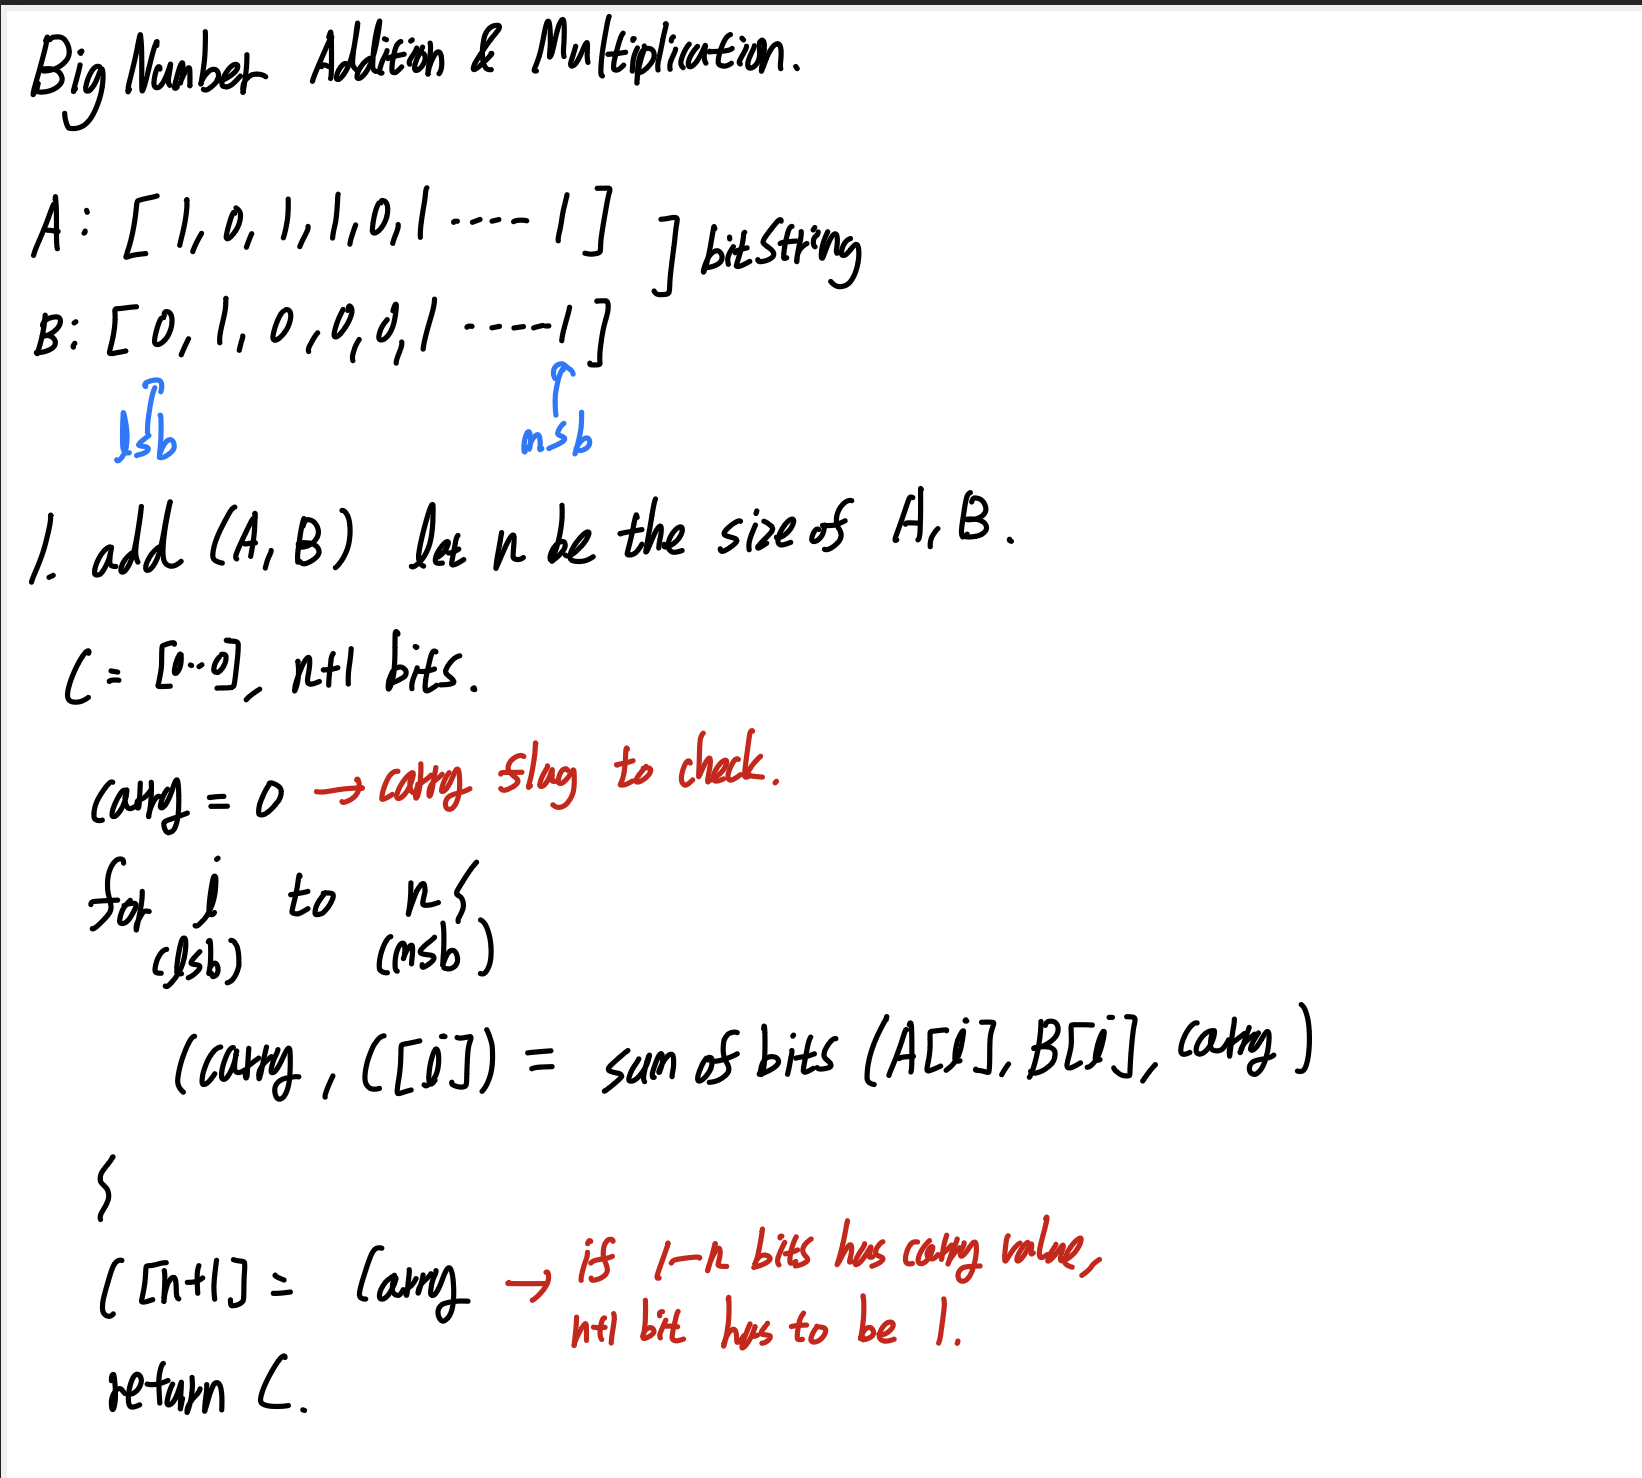 Big Number Addition & Multiplication.
A: [ 1, 0, 1, 1, 0, 1 ····- 1 ]
] bitString
B: [ 0, 1, 0, 0, 0, 1 ----- 1 ]
lsb msb
1. add (A, B) let n be the size of A, B.
C = [0··0], n+1 bits.
carry = 0 → carry flag to check.
for i to n {
(lsb) (msb)
(carry, C[i]) = sum of bits (A[i], B[i], carry)
}
C[n+1] = Carry → if 1-n bits has carry value,
n+1 bit has to be 1.
return C.